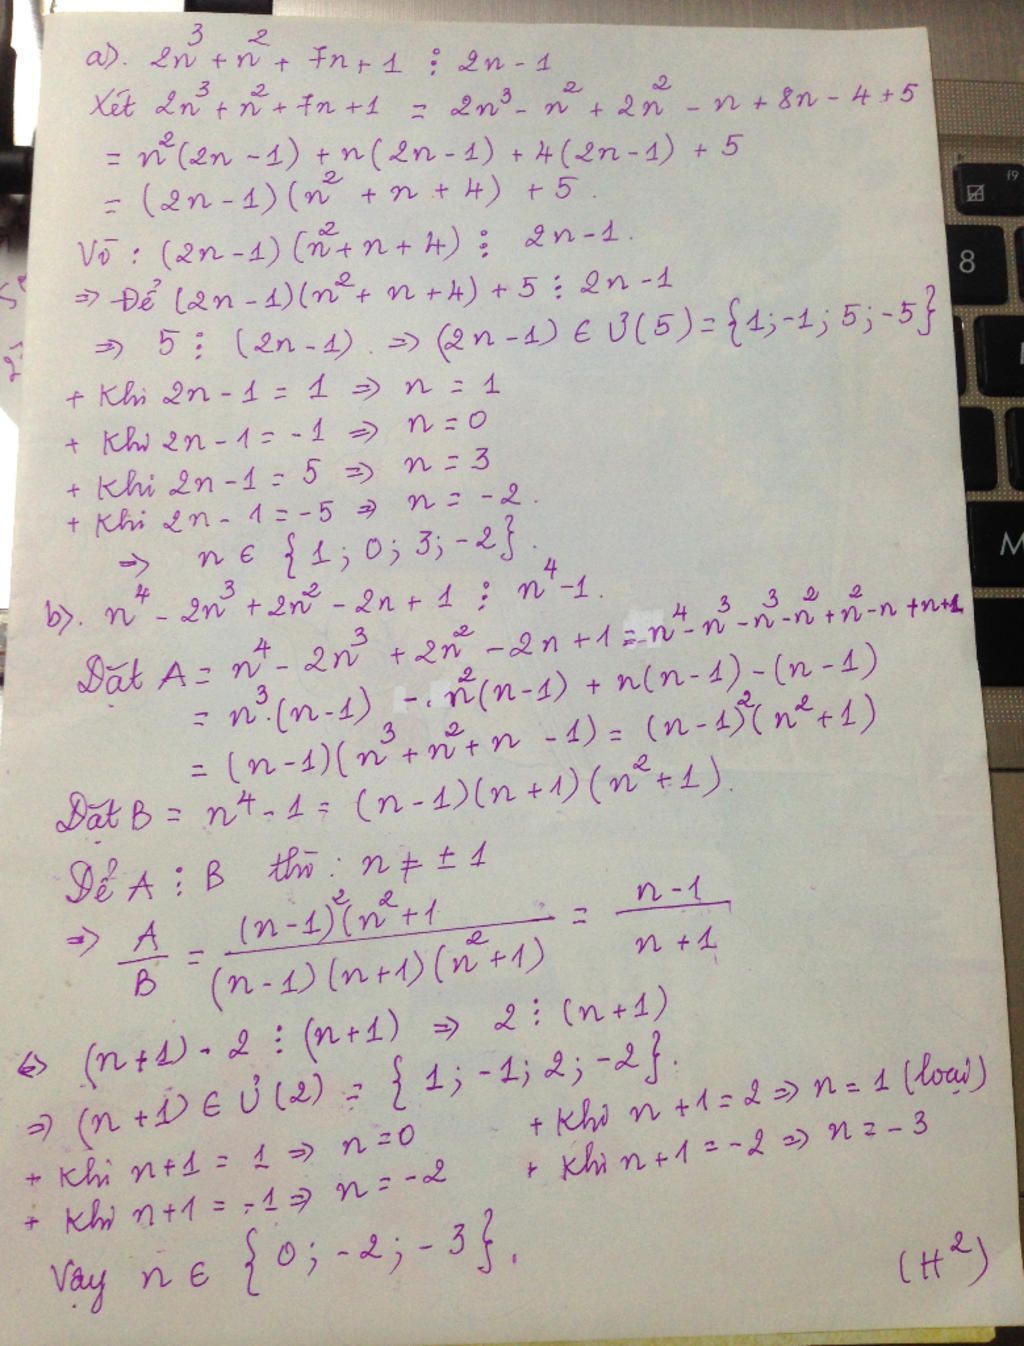 a). 2n³ + n² + 7n + 1 ⋮ 2n - 1
Xét 2n³ + n² + 7n + 1 = 2n³ - n² + 2n² - n + 8n - 4 + 5
= n²(2n - 1) + n(2n - 1) + 4(2n - 1) + 5
= (2n - 1)(n² + n + 4) + 5.
Vì : (2n - 1)(n² + n + 4) ⋮ 2n - 1.
⇒ Để (2n - 1)(n² + n + 4) + 5 ⋮ 2n - 1
⇒ 5 ⋮ (2n - 1). ⇒ (2n - 1) ∈ Ư(5) = {1; -1; 5; -5}
+ Khi 2n - 1 = 1 ⇒ n = 1
+ Khi 2n - 1 = -1 ⇒ n = 0
+ Khi 2n - 1 = 5 ⇒ n = 3
+ Khi 2n - 1 = -5 ⇒ n = -2.
⇒ n ∈ {1; 0; 3; -2}.
b). n⁴ - 2n³ + 2n² - 2n + 1 ⋮ n⁴ - 1.
Đặt A = n⁴ - 2n³ + 2n² - 2n + 1 = n⁴ - n³ - n³ - n² + n² - n + n + 1
= n³.(n - 1) - n²(n - 1) + n(n - 1) - (n - 1)
= (n - 1)(n³ + n² + n - 1) = (n - 1)²(n² + 1)
Đặt B = n⁴ - 1 = (n - 1)(n + 1)(n² + 1).
Để A ⋮ B thì : n ≠ ± 1
⇒ A/B = (n - 1)²(n² + 1 / (n - 1)(n + 1)(n² + 1) = n - 1 / n + 1
⇔ (n + 1) - 2 ⋮ (n + 1) ⇒ 2 ⋮ (n + 1)
⇒ (n + 1) ∈ Ư(2) = {1; -1; 2; -2}.
+ Khi n + 1 = 1 ⇒ n = 0 + Khi n + 1 = 2 ⇒ n = 1 (loại)
+ Khi n + 1 = -1 ⇒ n = -2 + Khi n + 1 = -2 ⇒ n = -3
Vậy n ∈ {0; -2; -3}.
(H²)
f9
8
M